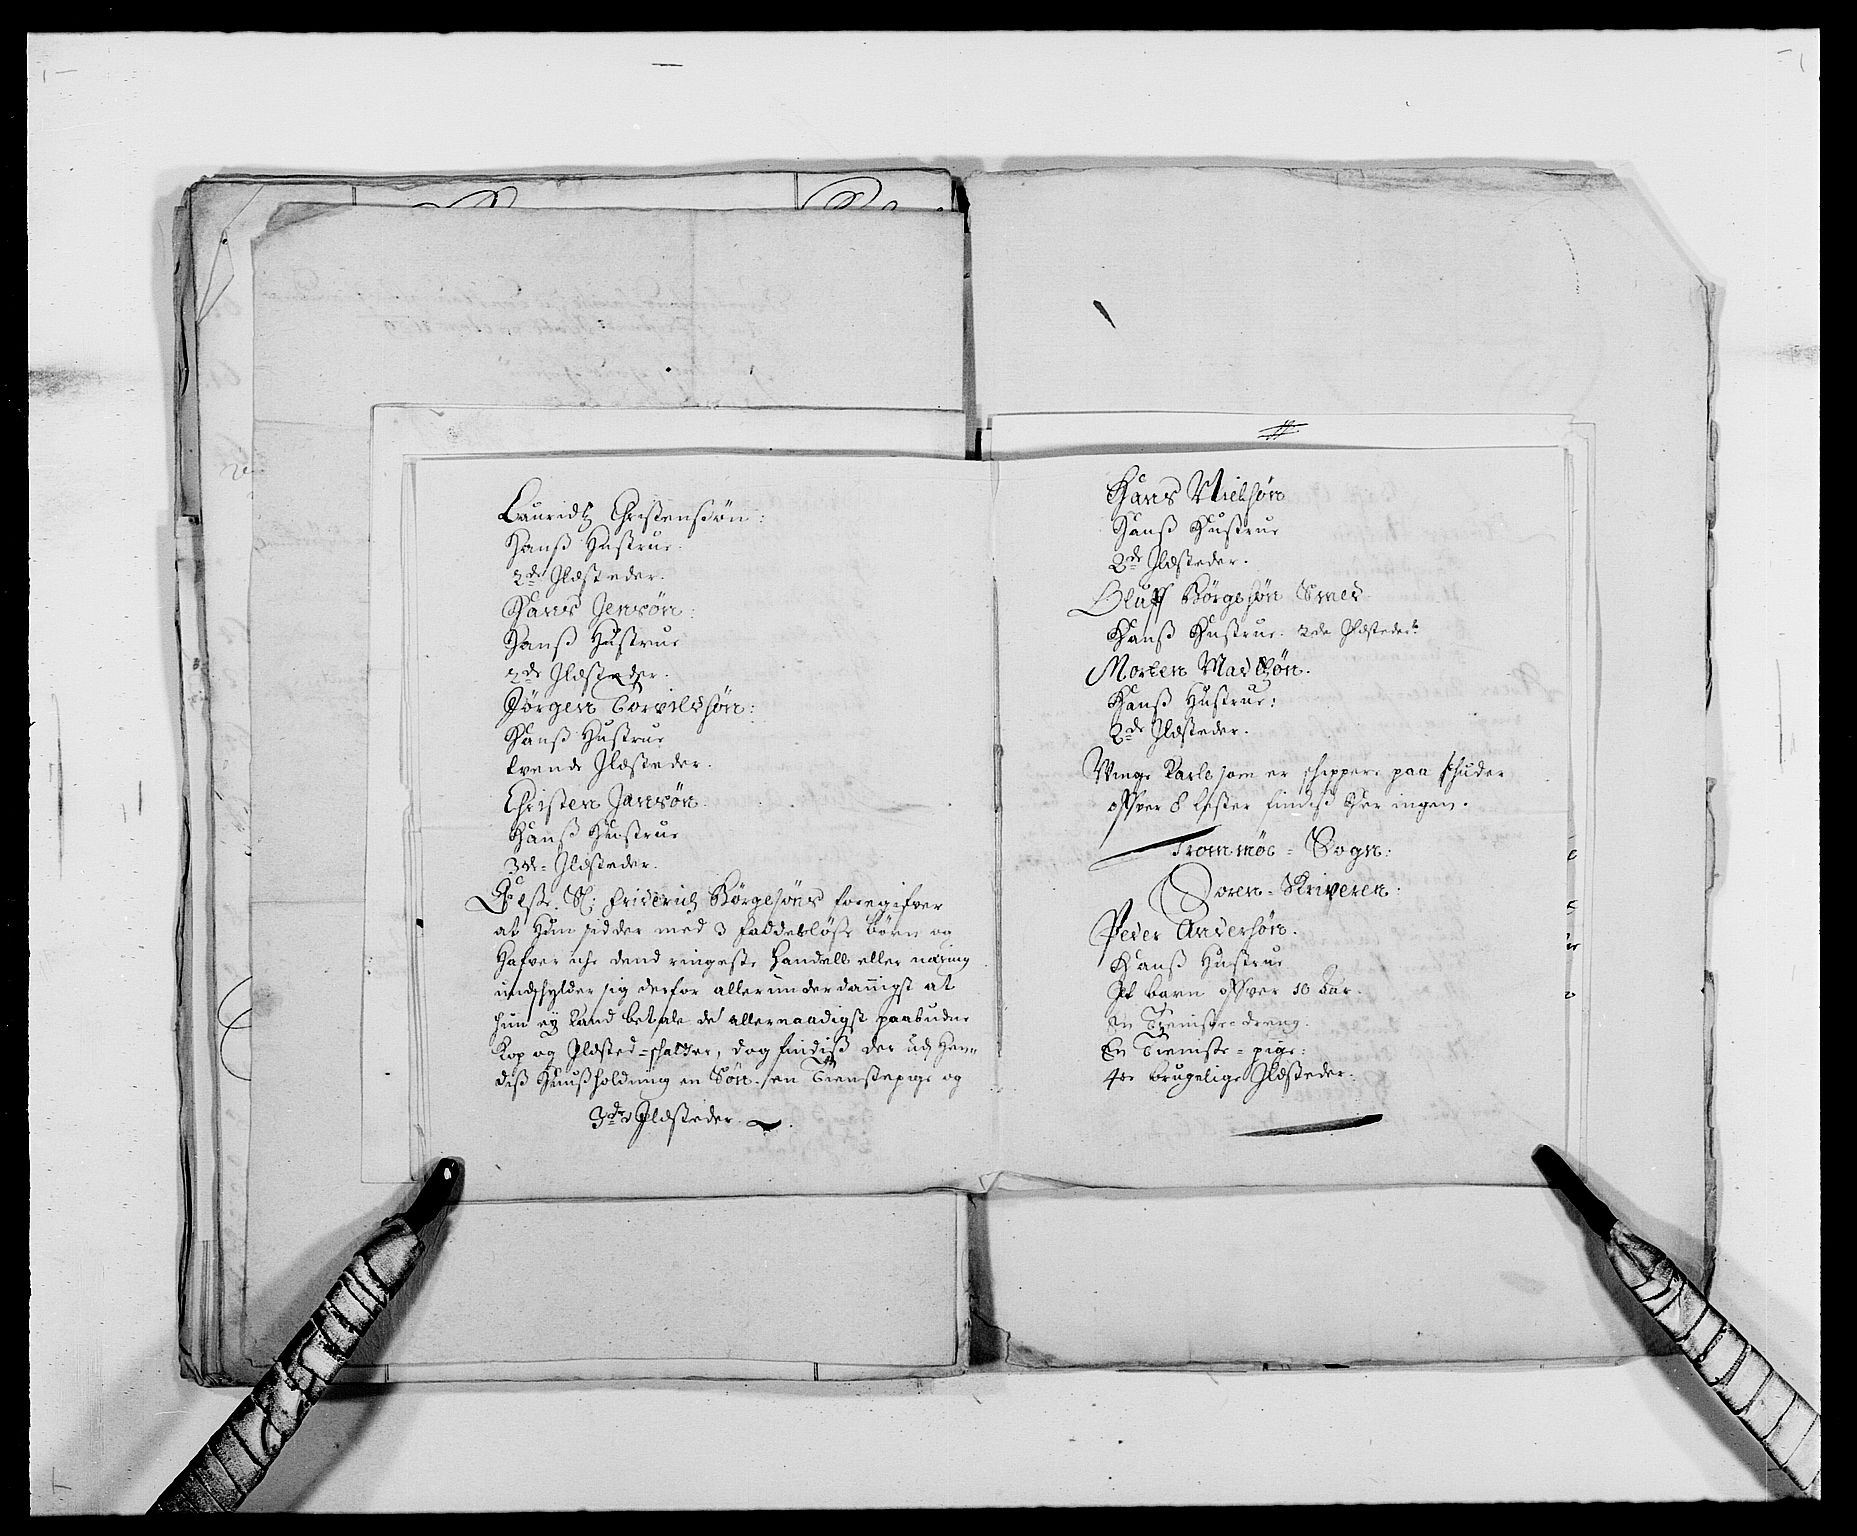 Lauridtz Christenssøn:
Hanß Hustrue.
2de Ildsteder.
Hans Jensøn:
Hanß Hustrue
2de Ildsteder.
Jørgen Torvildsøn:
Hanß Hustrue
tvende Ildsteder.
Christen Jansøn.
Hanß Hustrue
3de Ildsteder.
Sl: Friderich Børgesøns foregifver
at Hun sidder med 3 faderløse børn og
Hafver iche dend ringeste Handell eller næring
undschylder sig derfor allerunderdanigst at
hun ey kand betale de allernaadigst paabudne
Kop og Ildsted-schatter, dog findiß der udj Hen-
diß Huußholdning en Søn, en Tienstepige og
3de Ildsteder.
Hans Nielsøn
Hanß Hustrue
2de Ildsteder.
Oluff Børgesøn Smed
Hanß Hustrue. 2de Ildsteder.
Morten Madtzøn.
Hanß Hustrue:
2de Ildsteder.
Unge Karle som er schippere paa schuder
offver 8 lester findiß her ingen.
Trommøe-Sogn:
Soren-Skriveren.
Peder Andersøn.
Hanß Hustrue
Et barn offver 10 aar.
En Tieniste-dreng.
En Tieniste-pige:
4re brugelige Ildsteder.